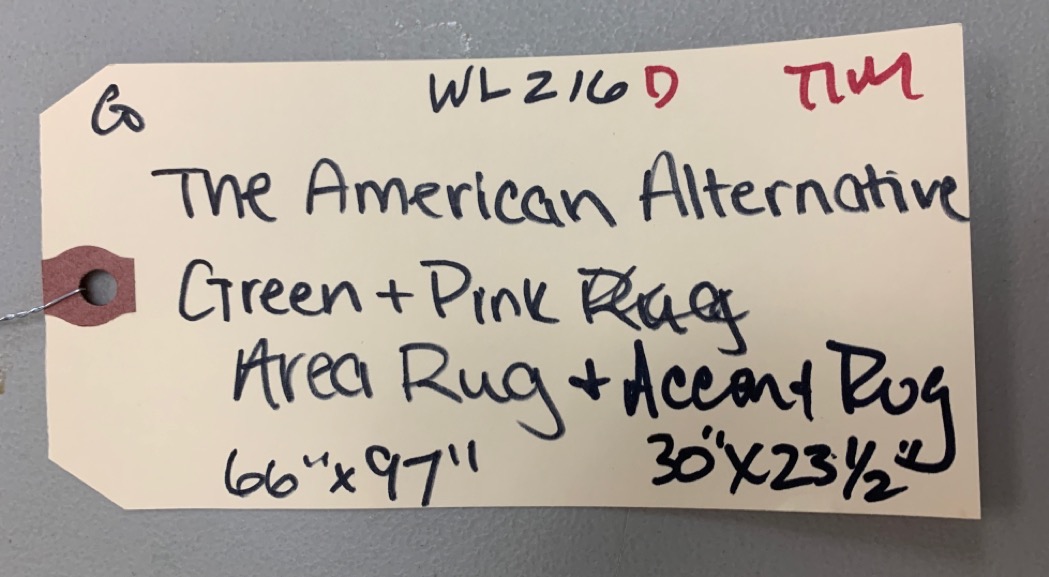 Go WL216 D TIM
The American Alternative
Green + Pink Rug
Area Rug + Accent Rug
66" x 97" 30" X 23 1/2"